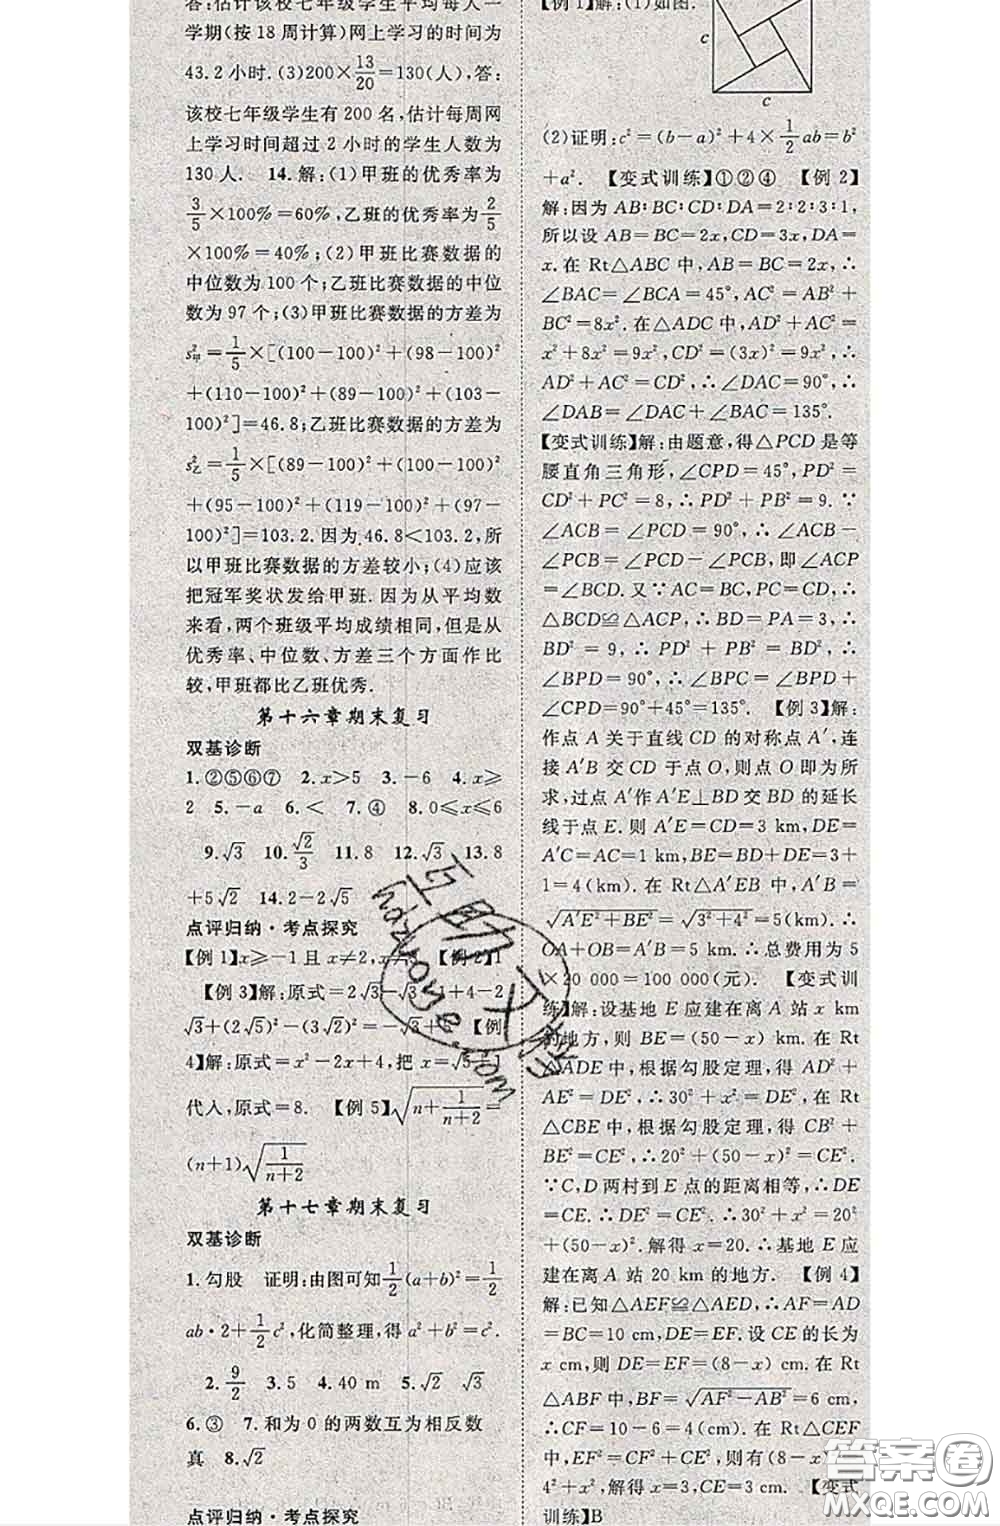 答:估计该校七年级学生平均每人一
学期(按18周计算)网上学习的时间为
43.2小时.(3)200×13/20=130(人),答:
该校七年级学生有200名,估计每周网
上学习时间超过2小时的学生人数为
130人. 14.解:(1)甲班的优秀率为
3/5×100%=60%,乙班的优秀率为2/5
×100%=40%;(2)甲班比赛数据的
中位数为100个;乙班比赛数据的中位
数为97个;(3)甲班比赛数据的方差为
s²甲=1/5×[(100-100)²+(98-100)²
+(110-100)²+(89-100)²+(103-
100)²]=46.8;乙班比赛数据的方差为
s²乙=1/5×[(89-100)²+(100-100)²
+(95-100)²+(119-100)²+(97-
100)²]=103.2.因为46.8<103.2,所
以甲班比赛数据的方差较小;(4)应该
把冠军奖状发给甲班.因为从平均数
来看,两个班级平均成绩相同,但是从
优秀率、中位数、方差三个方面作比
较,甲班都比乙班优秀.
第十六章期末复习
双基诊断
1.②⑤⑥⑦ 2.x>5 3.-6 4.x≥
2 5.-a 6.< 7.④ 8.0≤x≤6
9.√3 10.√2/3 11.8 12.√3 13.8
+5√2 14.2-2√5
点评归纳·考点探究
【例1】x≥-1且x≠2,x≠ 【例2】1
【例3】解:原式=2√3-√3-1+4-2
√3+(2√5)²-(3√2)²=-√3+ 【例
4】解:原式=x²-2x+4,把x=√5-1
代入,原式=8. 【例5】√(n+1/(n+2))=
(n+1)√(1/(n+2))
第十七章期末复习
双基诊断
1.勾股 证明:由图可知1/2(a+b)²=1/2
ab·2+1/2c²,化简整理,得a²+b²=c².
2.9/2 3.5 4.40 m 5.√2 √3
6.③ 7.和为0的两数互为相反数
真 8.√2
点评归纳·考点探究
【例1】解:(1)如图.
c
c
(2)证明:c²=(b-a)²+4×1/2ab=b²
+a². 【变式训练】①②④ 【例2】
解:因为AB∶BC∶CD∶DA=2∶2∶3∶1,
所以设AB=BC=2x,CD=3x,DA=
x.在Rt△ABC中,AB=BC=2x,∴
∠BAC=∠BCA=45°,AC²=AB²+
BC²=8x².在△ADC中,AD²+AC²=
x²+8x²=9x²,CD²=(3x)²=9x²,∴
AD²+AC²=CD²,∴∠DAC=90°,
∴∠DAB=∠DAC+∠BAC=135°.
【变式训练】解:由题意,得△PCD是等
腰直角三角形,∠CPD=45°,PD²=
CD²+PC²=8,∴PD²+PB²=9.∵
∠ACB=∠PCD=90°,∴∠ACB-
∠PCB=∠PCD-∠PCB,即∠ACP
=∠BCD.又∵AC=BC,PC=CD,∴
△BCD≌△ACP,∴BD=PA=3,∴
BD²=9,∴PD²+PB²=BD²,∴
∠BPD=90°,∴∠BPC=∠BPD+
∠CPD=90°+45°=135°. 【例3】解:
作点A关于直线CD的对称点A′,连
接A′B交CD于点O,则点O即为所
求,过点A′作A′E⊥BD交BD的延长
线于点E.则A′E=CD=3 km,DE=
A′C=AC=1 km,BE=BD+DE=3+
1=4(km).在Rt△A′EB中,A′B=
√(A′E²+BE²)=√(3²+4²)=5(km).∴
OA+OB=A′B=5 km.∴总费用为5
×20 000=100 000(元). 【变式训
练】解:设基地E应建在离A站x km
的地方,则BE=(50-x) km.在Rt
△ADE中,根据勾股定理,得AD²+
AE²=DE²,∴30²+x²=DE².在Rt
△CBE中,根据勾股定理,得CB²+
BE²=CE²,∴20²+(50-x)²=CE².
∵C,D两村到E点的距离相等,∴DE
=CE.∴DE²=CE².∴30²+x²=20²
+(50-x)².解得x=20.∴基地E应
建在离A站20 km的地方. 【例4】
解:已知△AEF≌△AED,∴AF=AD
=BC=10 cm,DE=EF.设CE的长为
x cm,则DE=EF=(8-x) cm.在Rt
△ABF中,BF=√(AF²-AB²)=6 cm,
∴CF=10-6=4(cm).在Rt△CEF
中,EF²=CF²+CE²,则有(8-x)²=
4²+x²,解得x=3,CE=3 cm.【变式
训练】B
互助文档
hdzuoye.com
答案圈
MXQE.COM